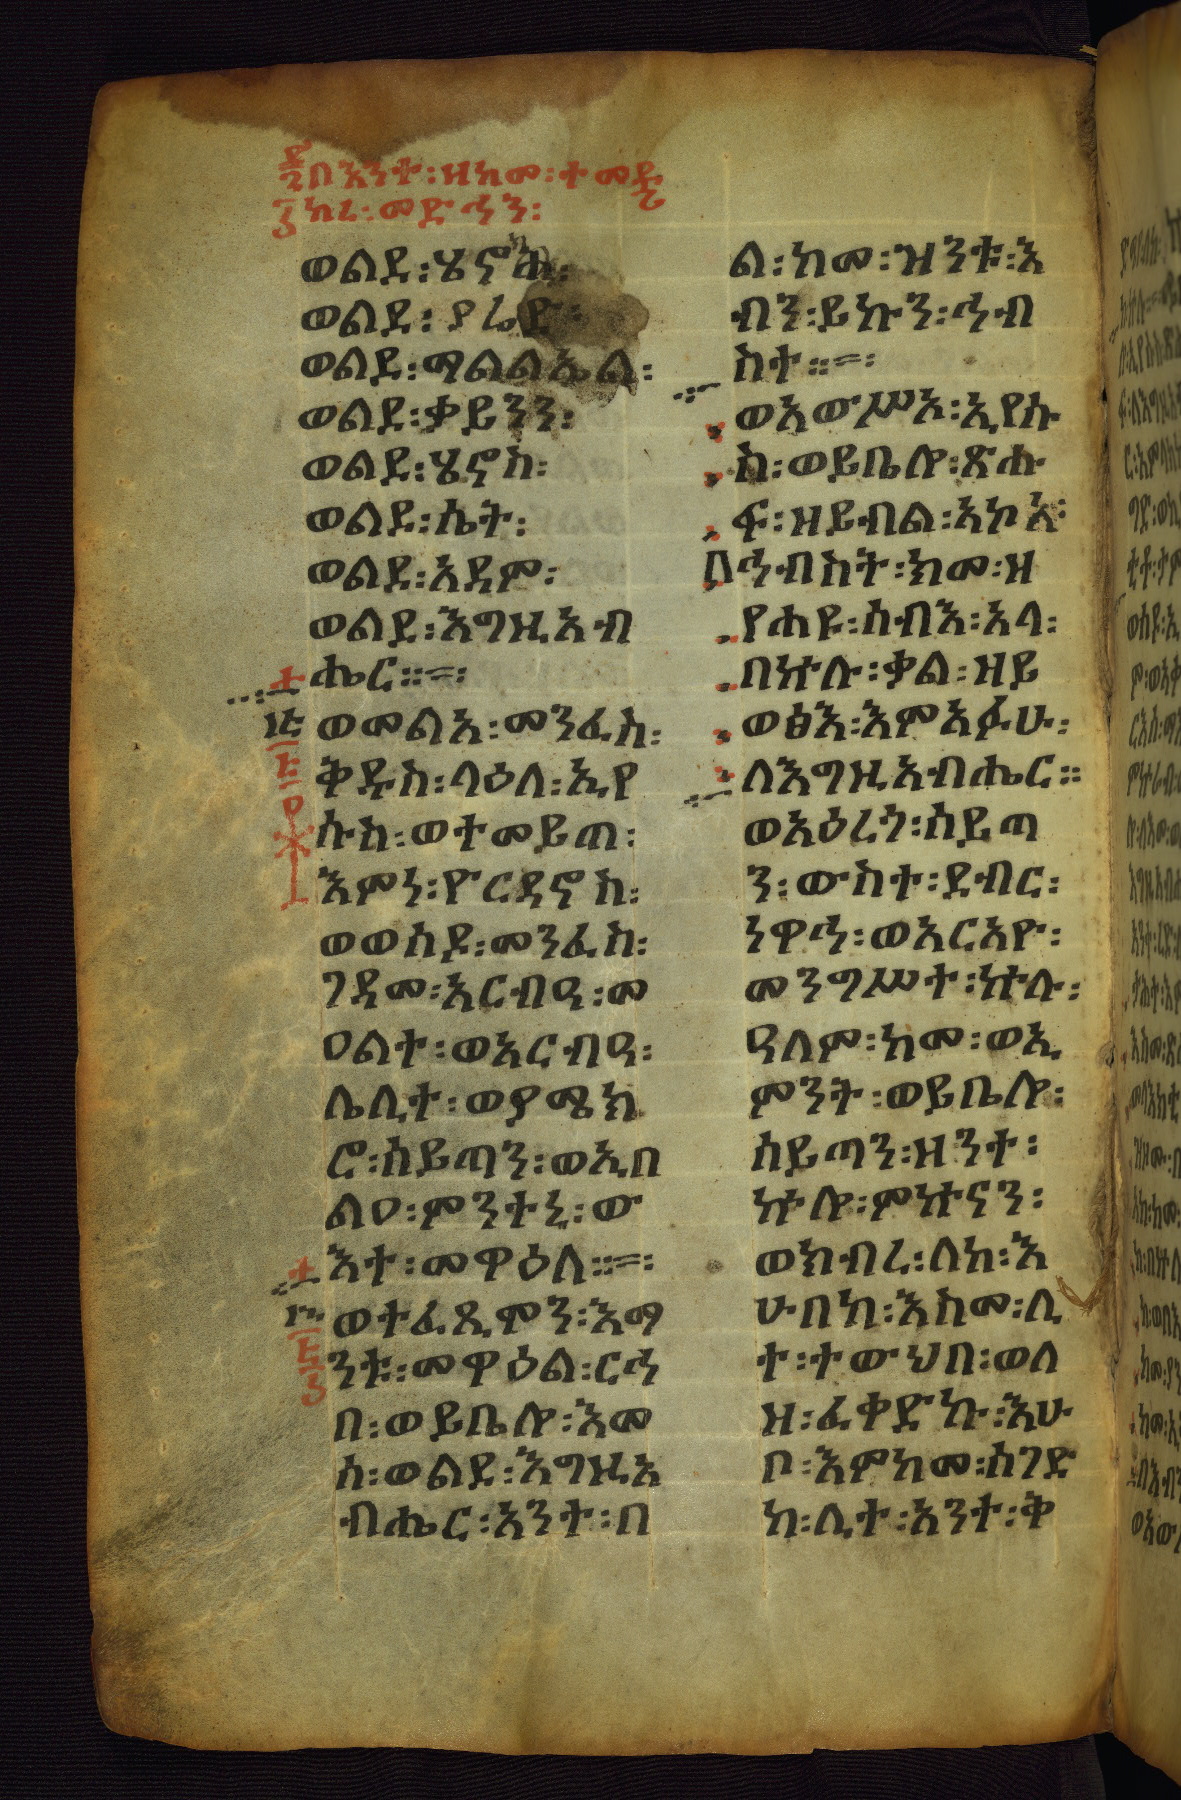 በእንተ፡ዘከመ፡ተመ
ከረ፡መድኅን፡
ወልደ፡ሄኖክ፡
ወልደ፡ያሬድ፡
ወልደ፡ማልልኤል፡
ወልደ፡ቃይንን፡
ወልደ፡ሄኖስ፡
ወልደ፡ሴት፡
ወልደ፡አዳም፡
ወልደ፡እግዚአብ
ሔር።=፡
ወመልአ፡መንፈስ፡
ቅዱስ፡ላዕለ፡ኢየ
ሱስ፡ወተመይጠ፡
እምነ፡ዮርዳኖስ፡
ወወሰዶ፡መንፈስ፡
ገዳመ፡አርብዓ፡መ
ዐልተ፡ወአርብዓ፡
ሌሊተ፡ወያሜክ
ሮ፡ሰይጣን፡ወኢበ
ልዐ፡ምንተኒ፡ው
እተ፡መዋዕለ።=፡
ወተፈጺሞን፡እማ
ንቱ፡መዋዕል፡ርኅ
በ፡ወይቤሎ፡እመ
ሰ፡ወልደ፡እግዚአ
ብሔር፡አንተ፡በ
ል፡ከመ፡ዝንቱ፡እ
ብን፡ይኩን፡ኅብ
ስተ።=፡
ወአውሥአ፡ኢየሱ
ስ፡ወይቤሎ፡ጽሑ
ፍ፡ዘይብል፡አኮ፡አ
በኅብስት፡ክመ፡ዘ
የሐዩ፡ሰብእ፡አላ፡
በኵሉ፡ቃል፡ዘይ
ወፅእ፡እምአፉሁ፡
ለእግዚአብሔር።
ወአዕረጎ፡ሰይጣ
ን፡ውስተ፡ደብር፡
ነዋኅ፡ወአርአዮ፡
መንግሥተ፡ኵሉ፡
ዓለም፡ከመ፡ወኢ
ምንት፡ወይቤሎ፡
ሰይጣን፡ዘንተ፡
ኵሎ፡ምኵናን፡
ወክብረ፡ለከ፡እ
ሁበከ፡እስመ፡ሊ
ተ፡ተውህበ፡ወለ
ዘ፡ፈቀድኩ፡እሁ
ቦ፡እምከመ፡ሰገድ
ከ፡ሊተ፡አንተ፡ቅ